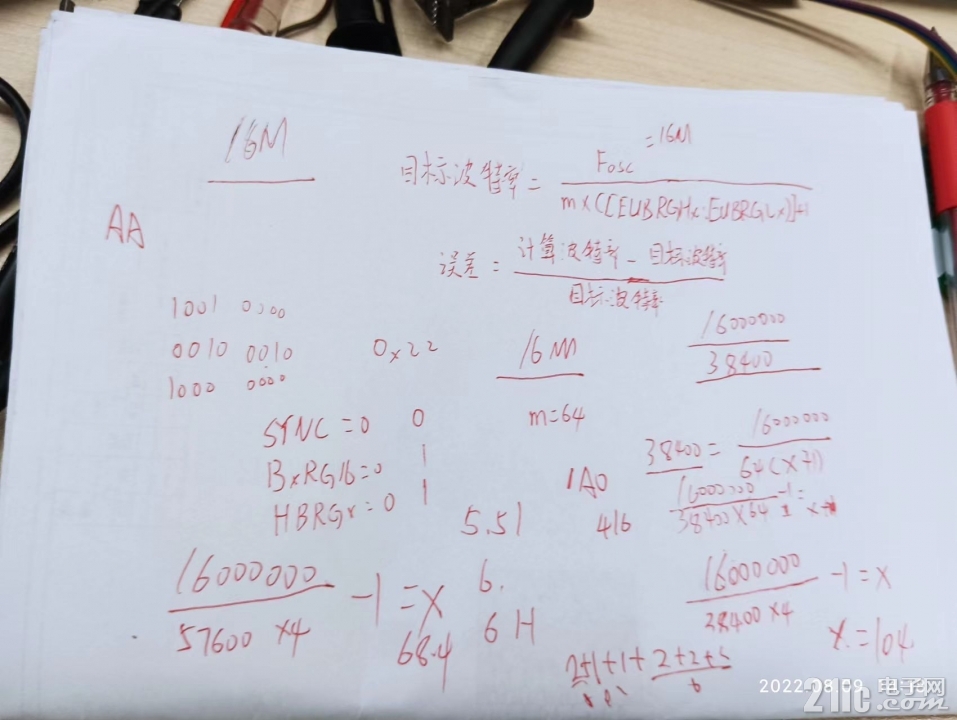 16M
=16M
目标波特率 = Fosc
m×([EUBRGHx:EUBRGLx)]+1
AA
误差 = 计算波特率 - 目标波特率
目标波特率
1001 0000
0010 0010 0x22
1000 0000
16M
m=64
16000000
38400
SYNC=0 0
BxRG16=0 1
HBRGx=0 1
38400 = 16000000
64(X+1)
1A0
416
16000000 -1 =
38400×64
5.51
16000000 -1 =X
57600 ×4
68.4
6.
6H
16000000 -1 =X
38400 ×4
X=104
2+1+1+2+2+5
6
2022.08.09 电子网
21ic.com